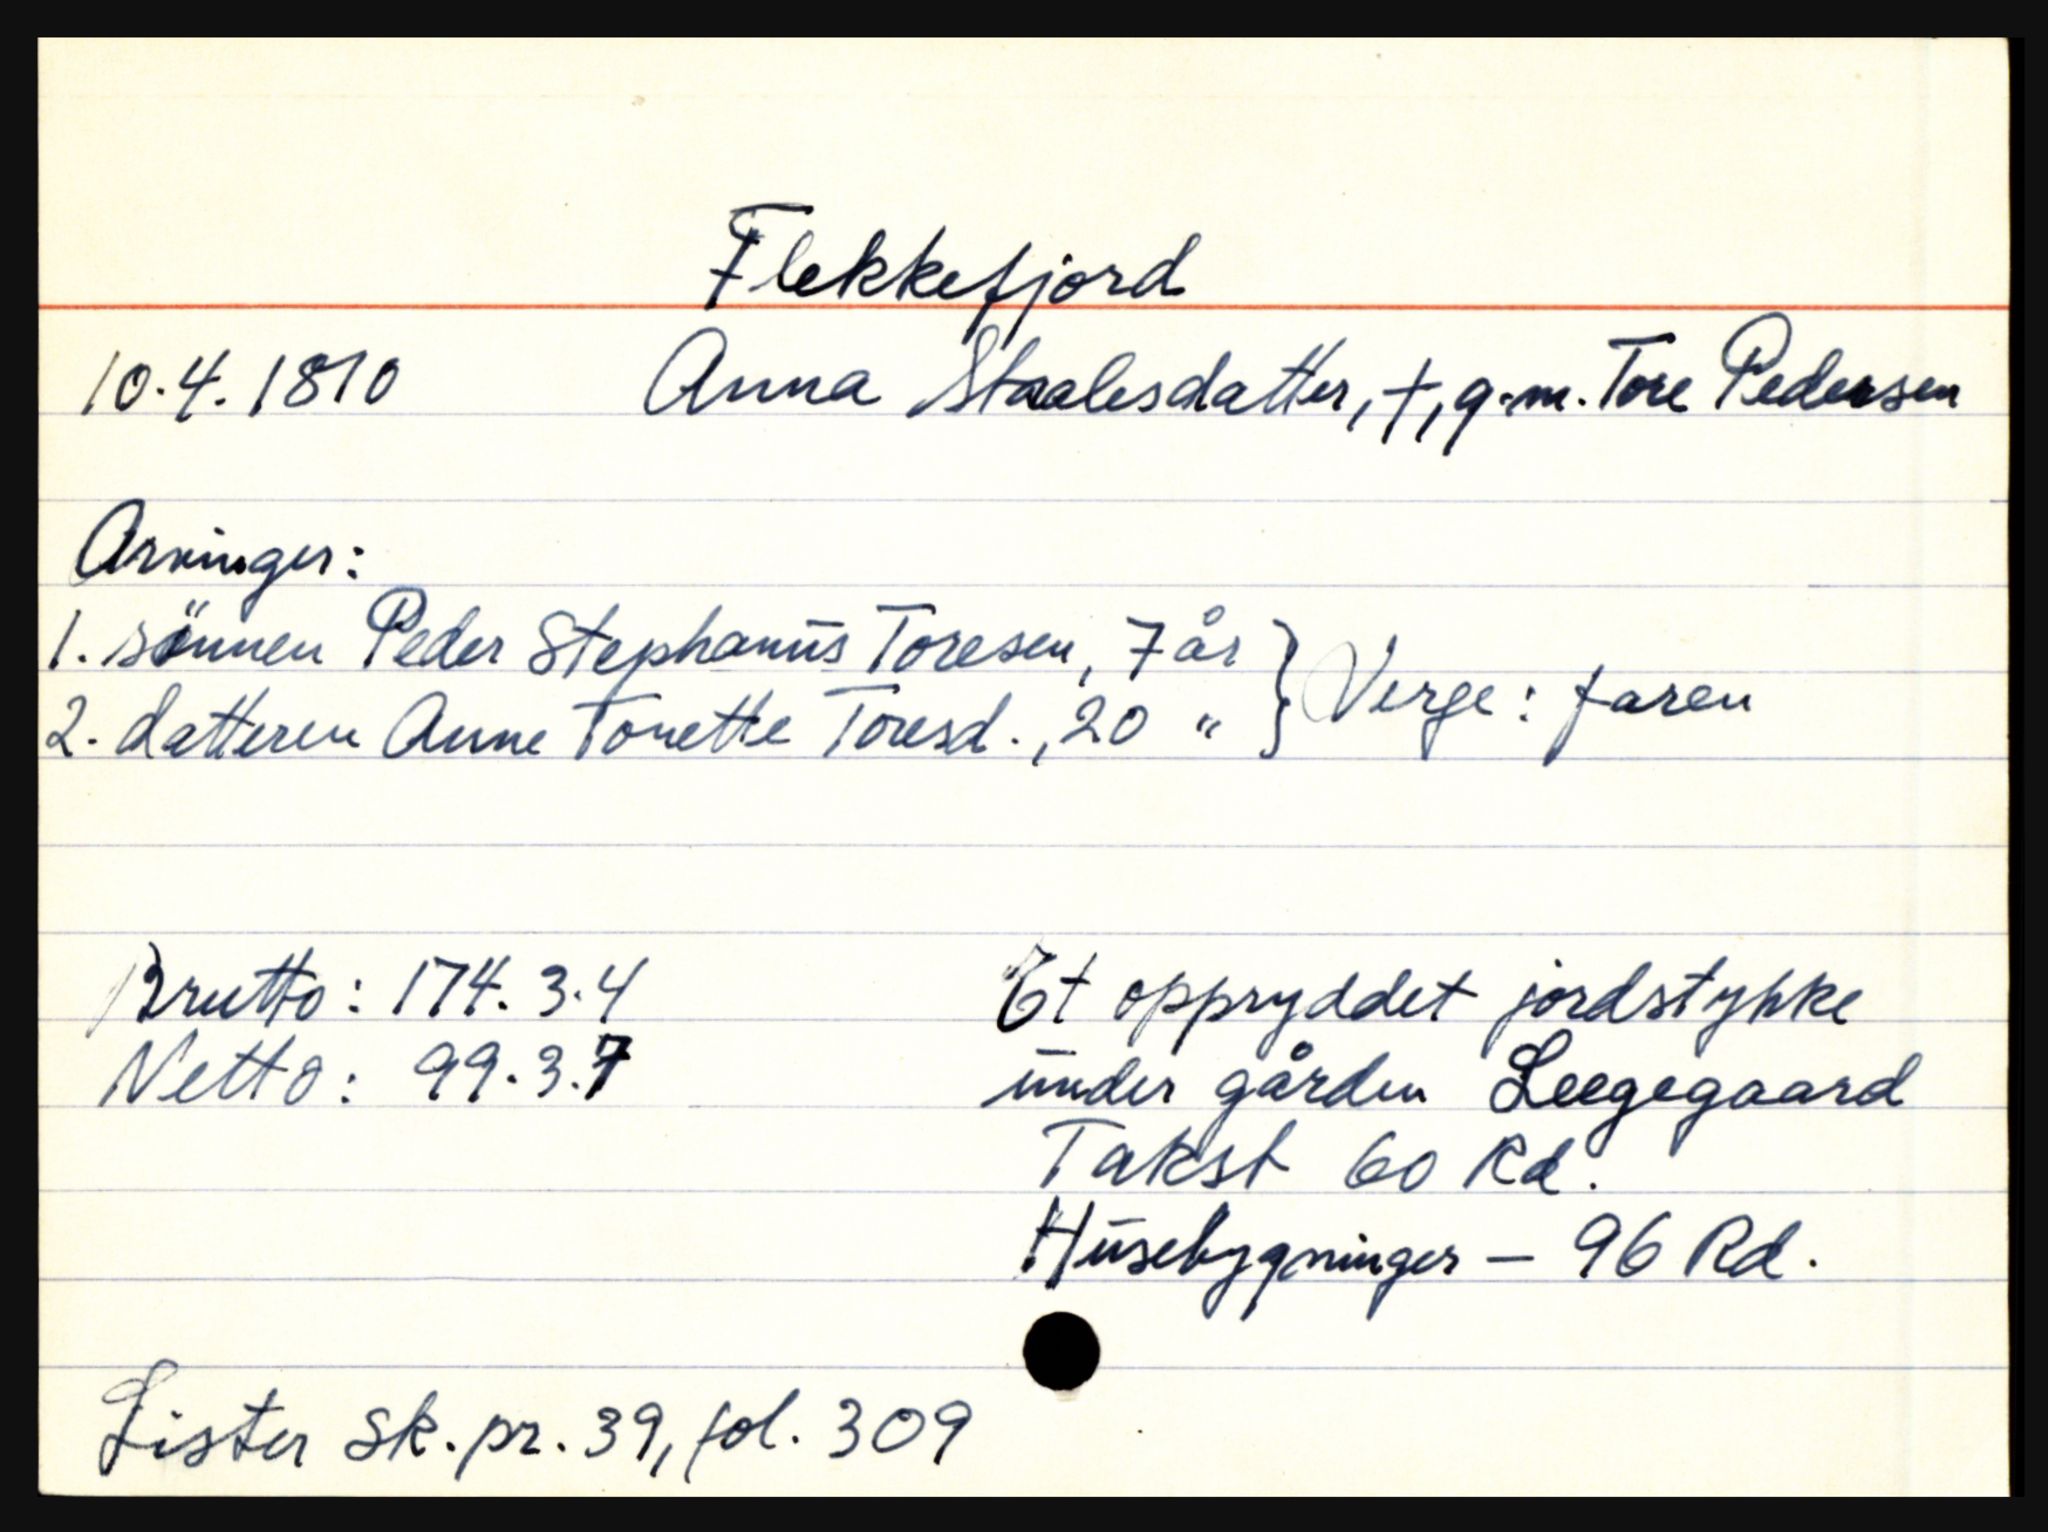 Flekkefjord
10.4.1810 Anna Staalesdatter, †, g.m. Tore Pedersen
Arvinger:
1. sönnen Peder Stephanus Toresen, 7 år } Verge: faren
2. datteren Anne Tonette Toresd., 20 " }
Brutto: 174.3.4 Et oppryddet jordstykke
Netto: 99.3.7 under gården Leegegaard
Takst 60 Rd.
Husebygninger — 96 Rd.
Lister sk.pr. 39, fol. 309